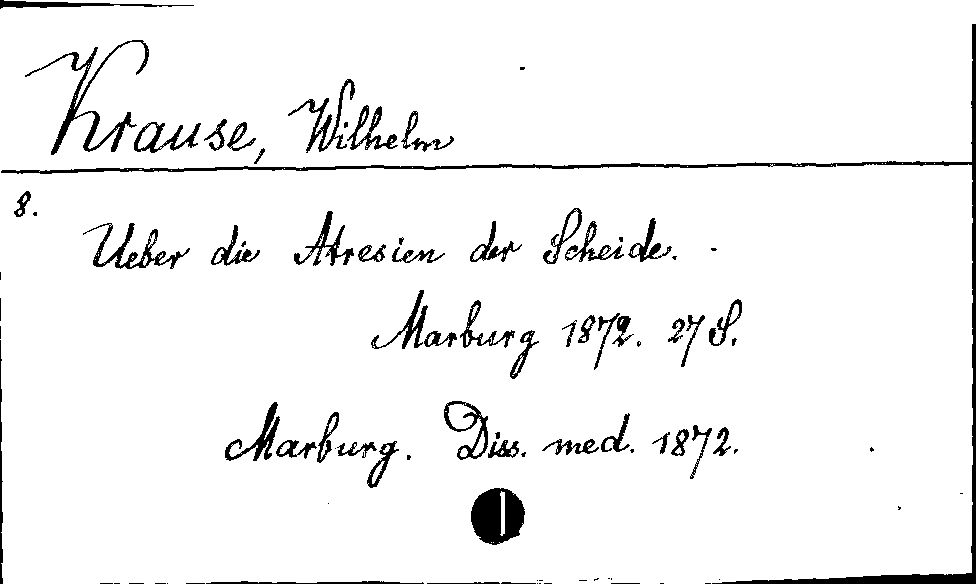 Krause, Wilhelm
8.
Ueber die Atresien der Scheide.
Marburg 1872. 27 S.
Marburg. Diss. med. 1872.